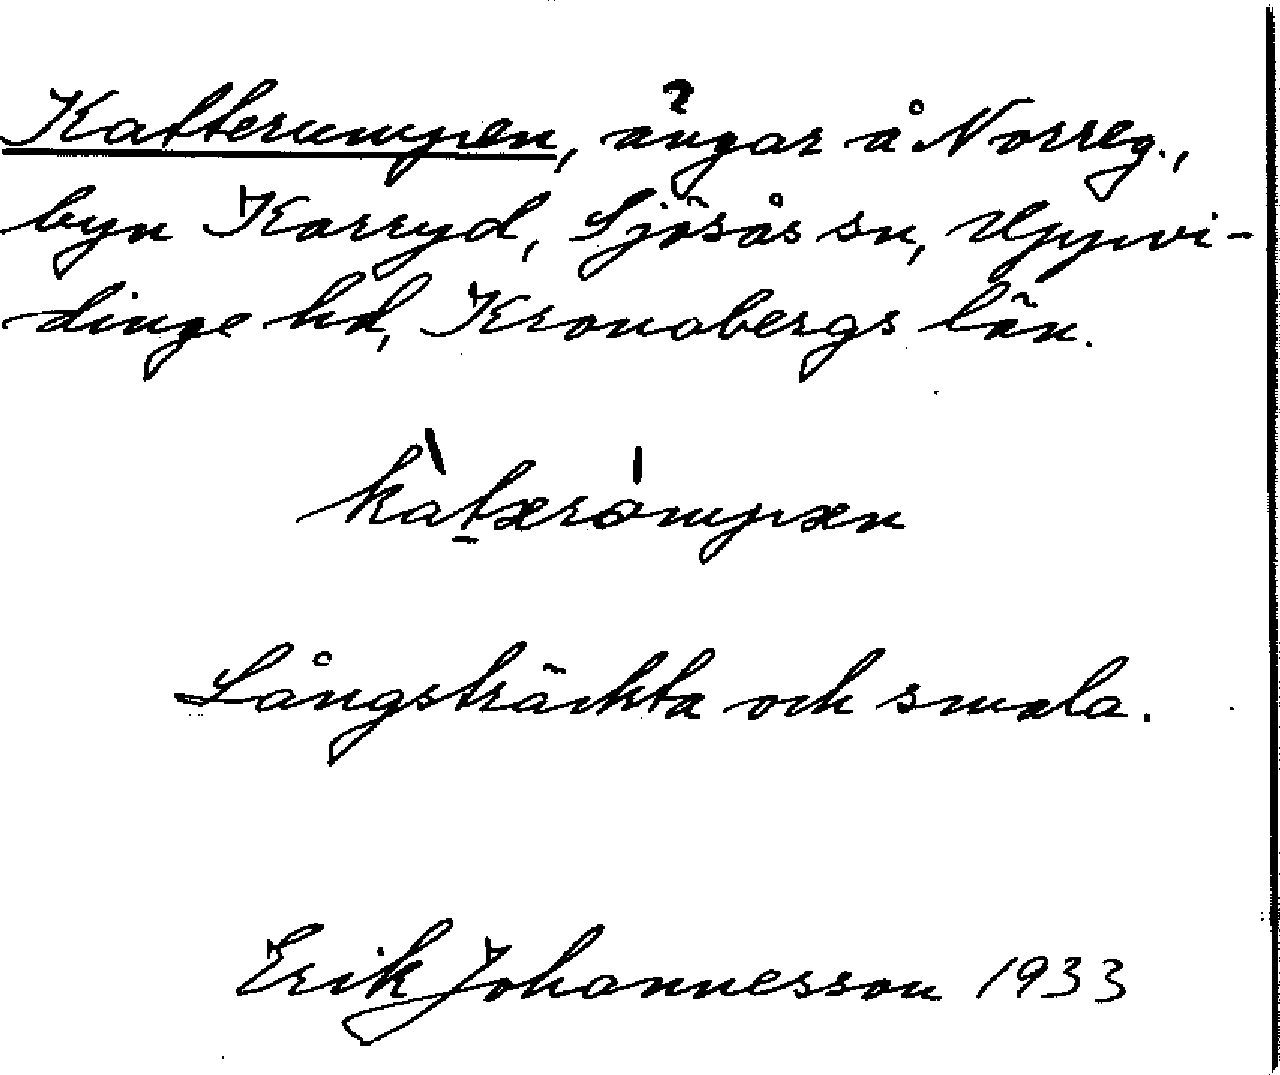 Katterumpen, ängar å Norreg.,
byn Karryd, Sjösås sn, Uppvi-
dinge hd, Kronobergs län.
kàtærömpæn
Långsträckta och smala.
Erik Johannesson 1933